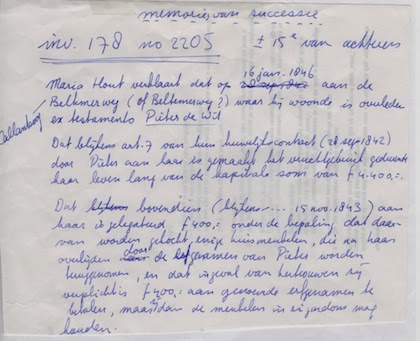 memorie van successie
inv. 178 no 2205 ± 15e van achteren
16 jan. 1846
Maria Hout verklaart dat op 28 sep 1842 aan de
Beltmerweg (of Beltemerweg?) waar hij woonde is overleden
ex testamento Pieter de Wit
Callantsoog
Dat blijkens art. 7 van hun huwelijkscontract (28 sep 1842)
door Pieter aan haar is gemaakt het vruchtgebruik gedurende
haar leven lang van de kapitale som van f 4.400,=.
Dat blijkens bovendien (blijkens --- 15 nov. 1843) aan
haar is gelegateerd f 400,= onder de bepaling dat daar
van worden gekocht enige huismeubelen, die na haar
overlijden door de erfgenamen van Pieter worden
teruggenomen, en dat ingeval van hertrouwen zij
verplicht is f 400,= aan genoemde erfgenamen te
betalen, maar dan de meubelen in eigendom mag
houden.